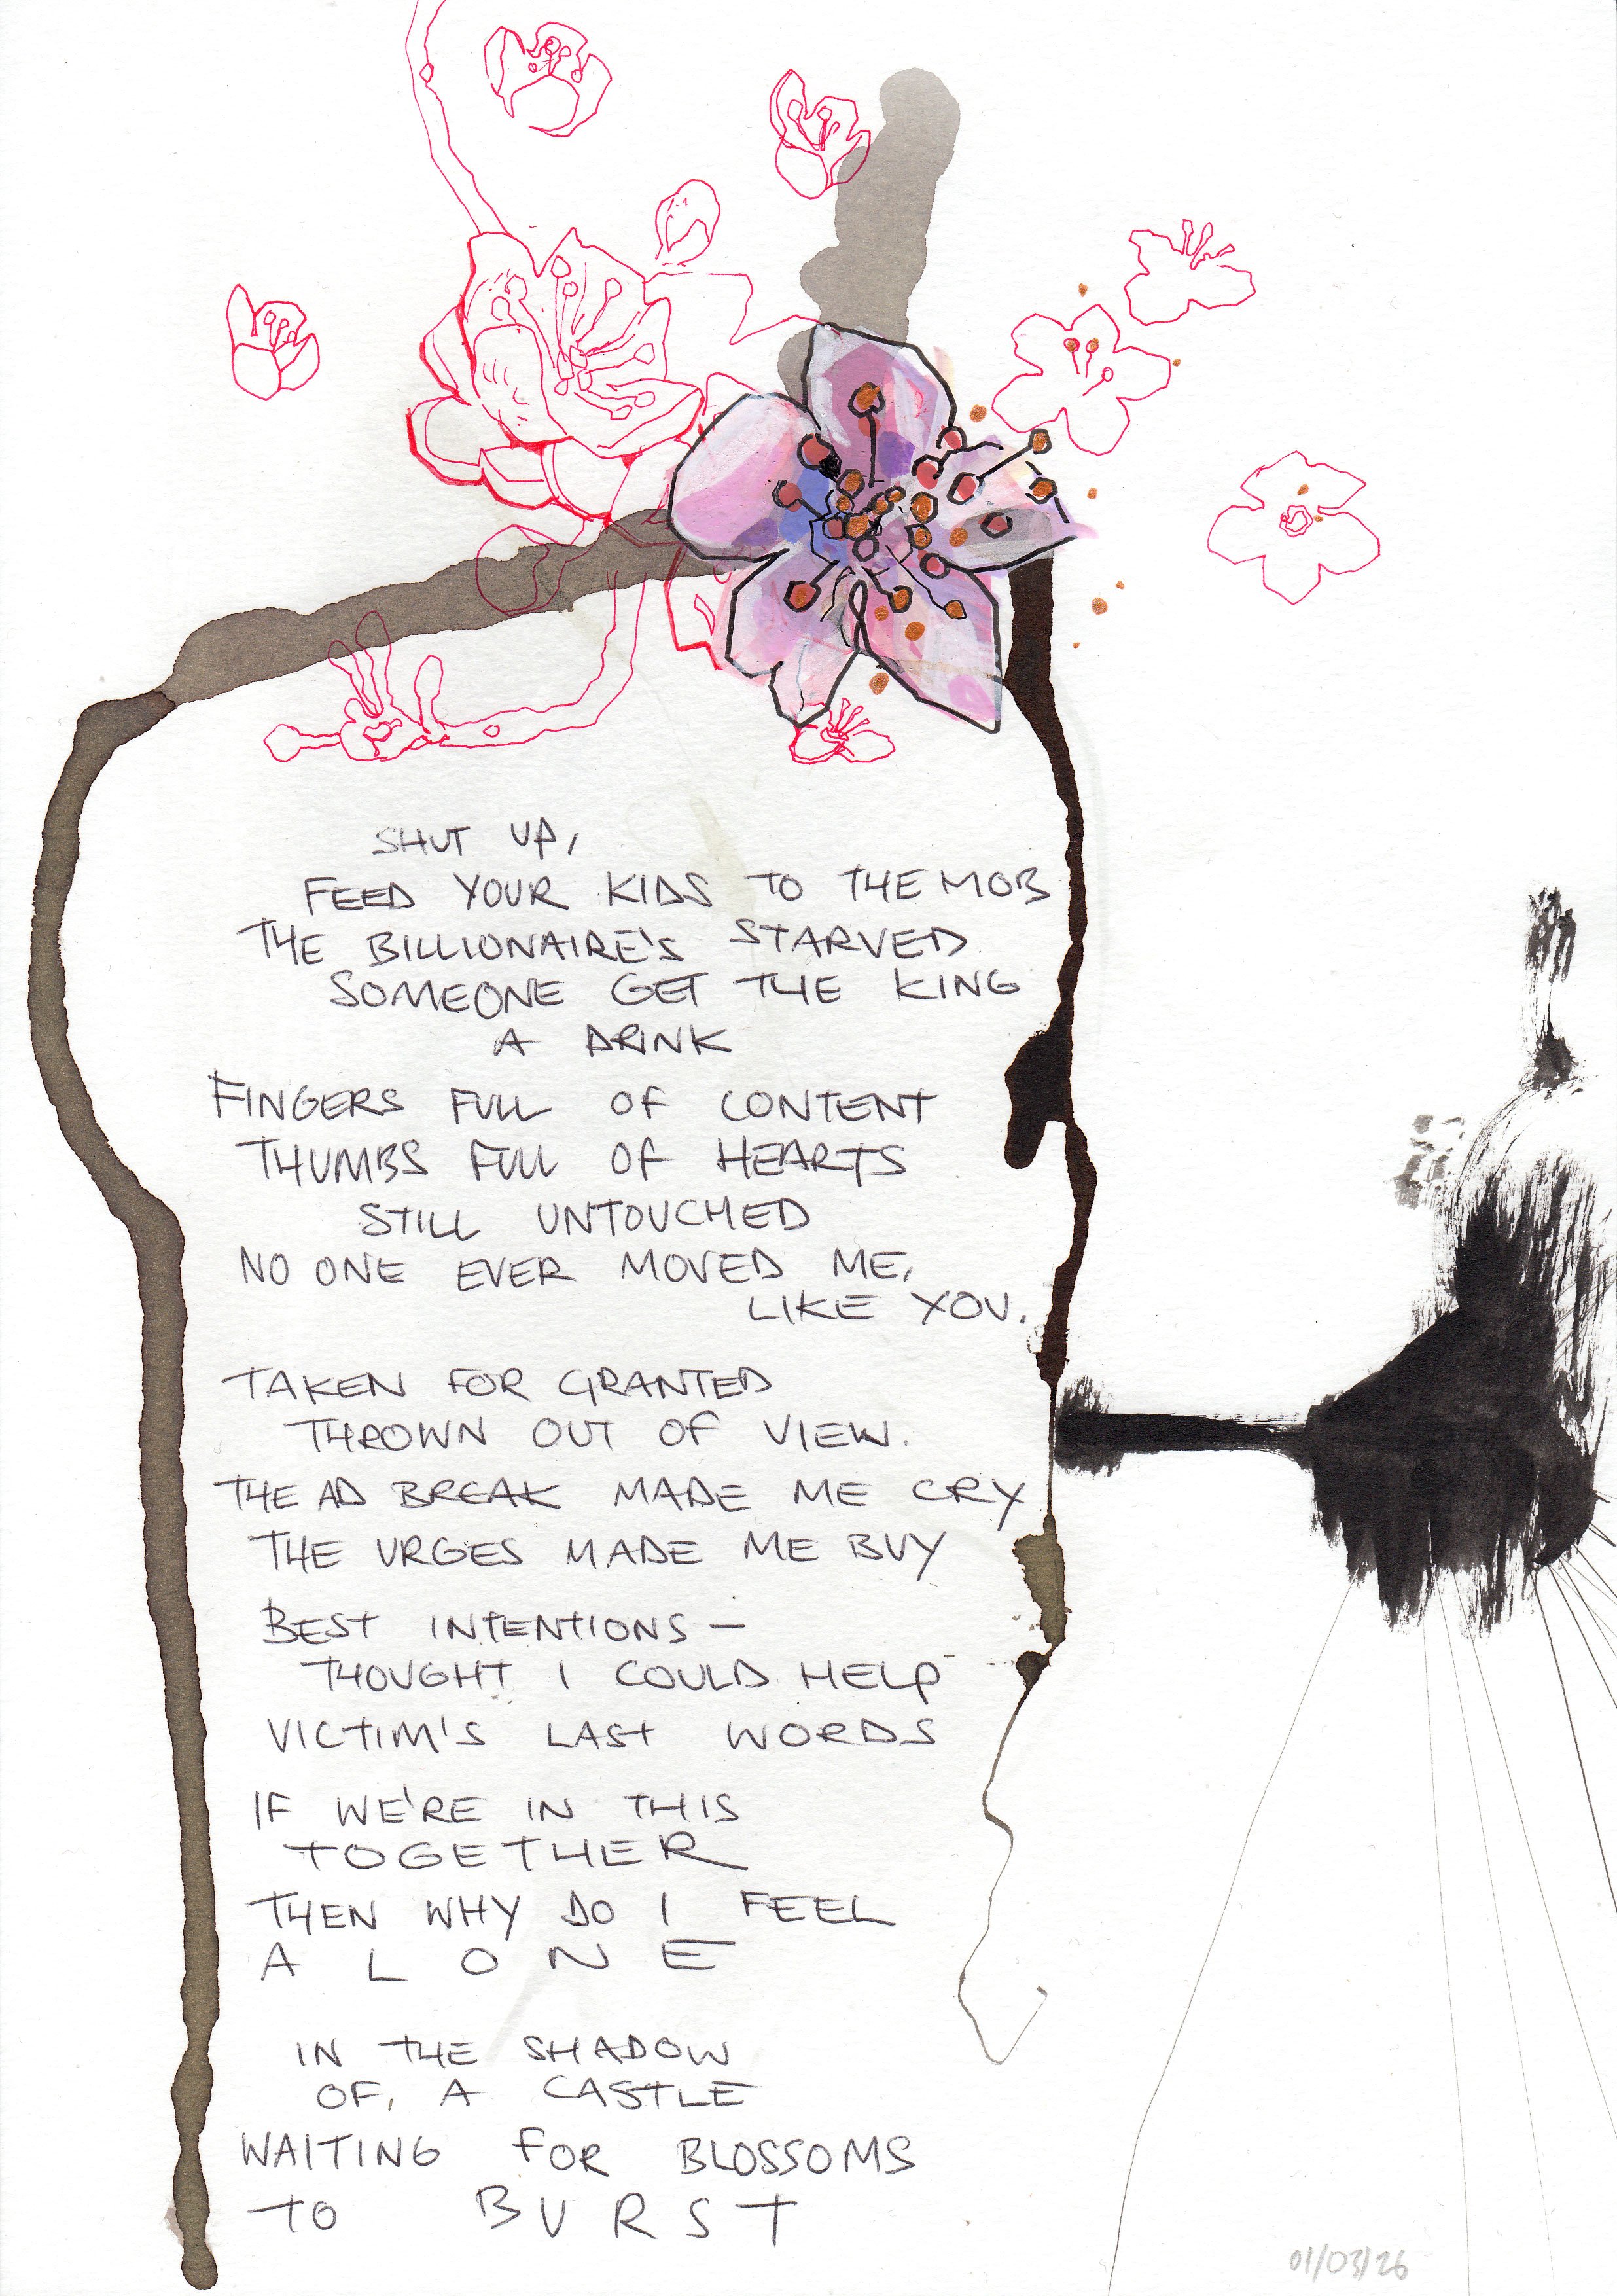 SHUT UP,
FEED YOUR KIDS TO THE MOB
THE BILLIONAIRE'S STARVED
SOMEONE GET THE KING
A DRINK
FINGERS FULL OF CONTENT
THUMBS FULL OF HEARTS
STILL UNTOUCHED
NO ONE EVER MOVED ME,
LIKE YOU.
TAKEN FOR GRANTED
THROWN OUT OF VIEW.
THE AD BREAK MADE ME CRY
THE URGES MADE ME BUY
BEST INTENTIONS —
THOUGHT I COULD HELP
VICTIM'S LAST WORDS
IF WE'RE IN THIS
TOGETHER
THEN WHY DO I FEEL
A L O N E
IN THE SHADOW
OF, A CASTLE
WAITING FOR BLOSSOMS
TO B U R S T
01/03/26